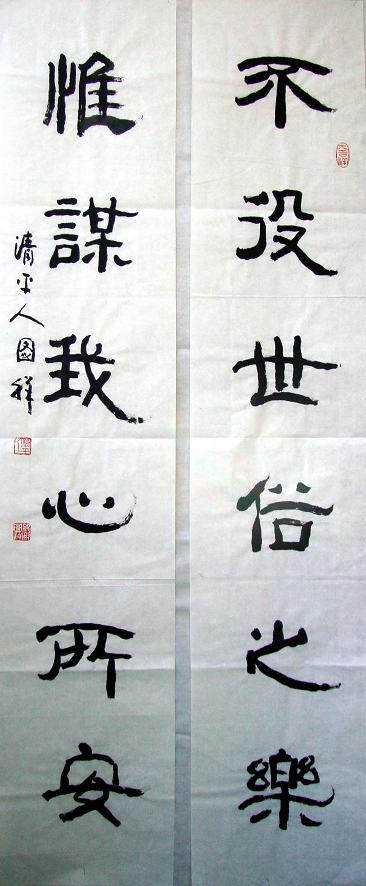 不役世俗之樂
惟謀我心所安
清平人國祥